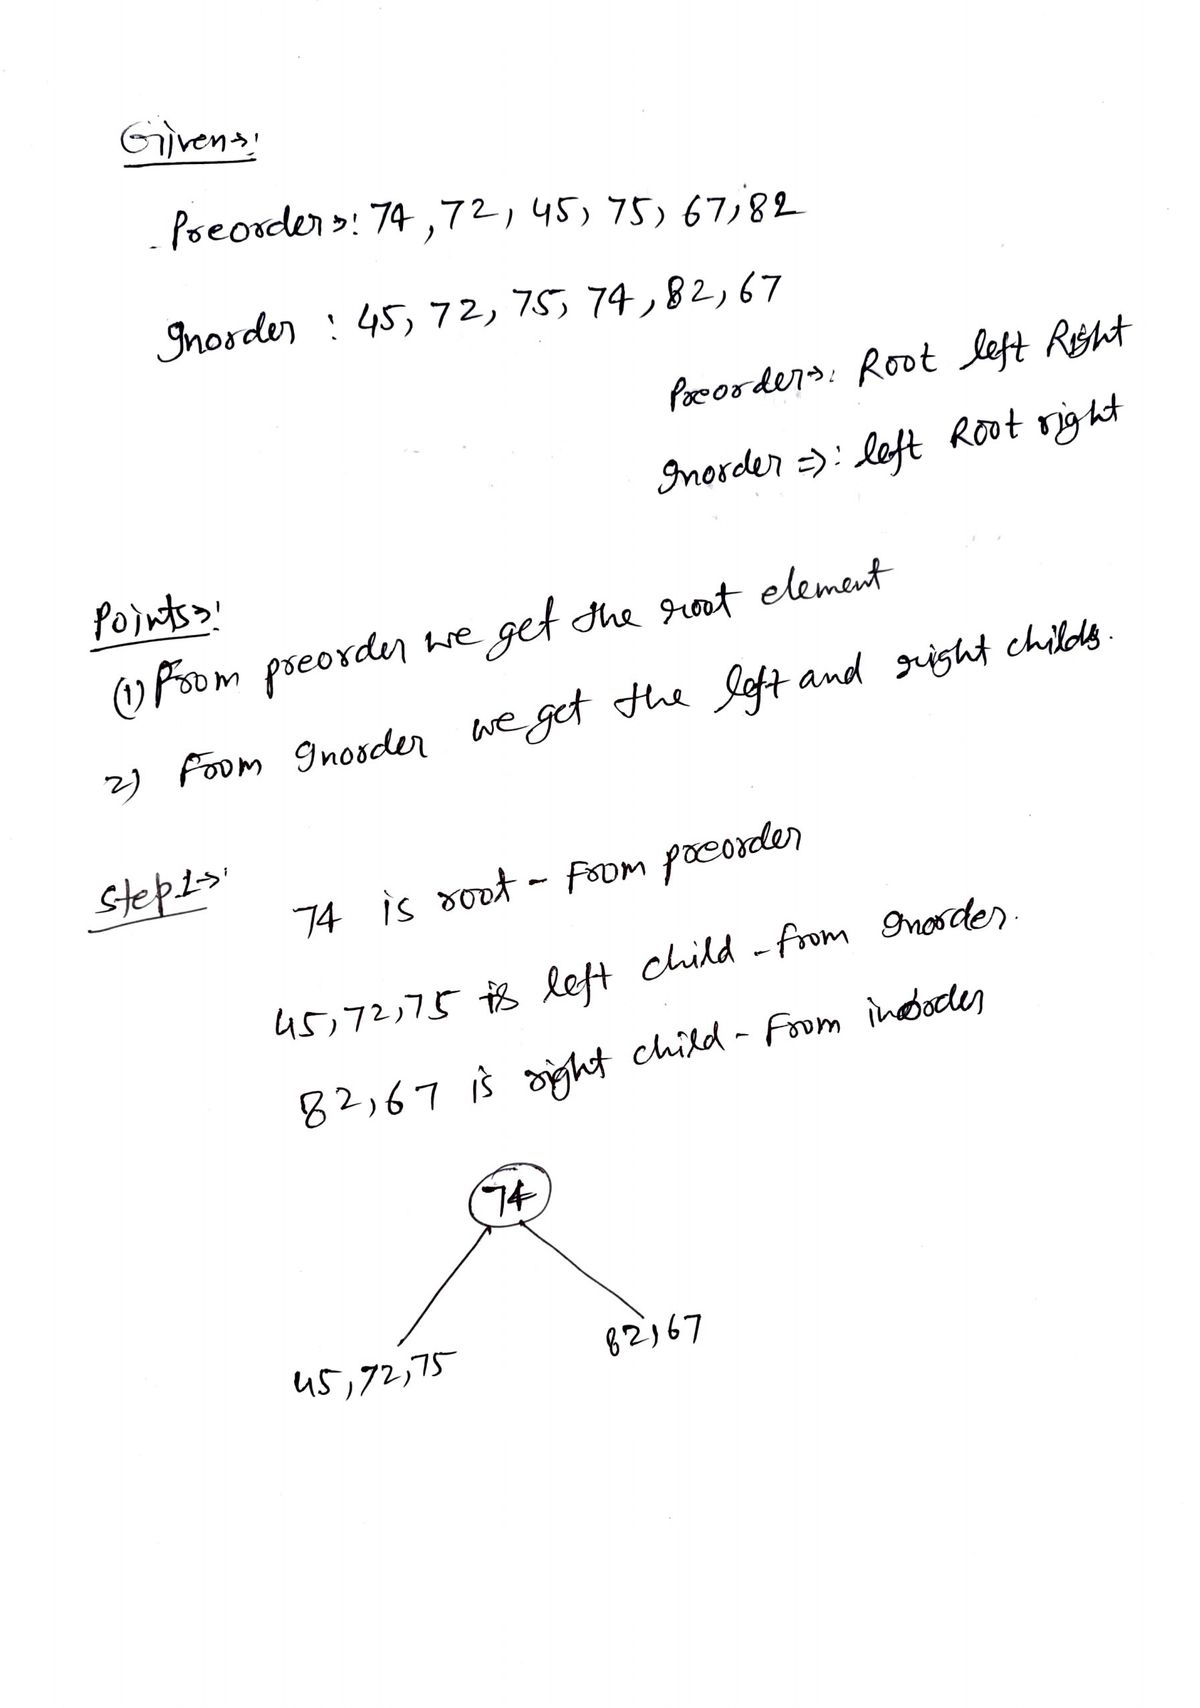 Given:
Preorder: 74, 72, 45, 75, 67, 82
Inorder : 45, 72, 75, 74, 82, 67
Preorder: Root left Right
Inorder ⇒: left Root right
Points:
(1) From preorder we get the root element
2) From Inorder we get the left and right childs.
Step 1:
74 is root - From preorder
45, 72, 75 is left child - from Inorder.
82, 67 is right child - From inorder
74
45, 72, 75
82, 67